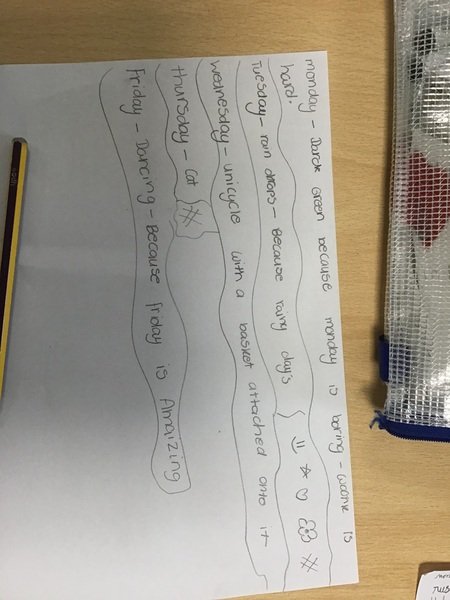 monday - Darck Green because monday is boring - woork is
hard.
Tuesday - rain drops - Because rainy day's
wednesday - unicycle with a basket attached onto it
thursday - cat
Friday - Dancing - Because friday is Amaizing